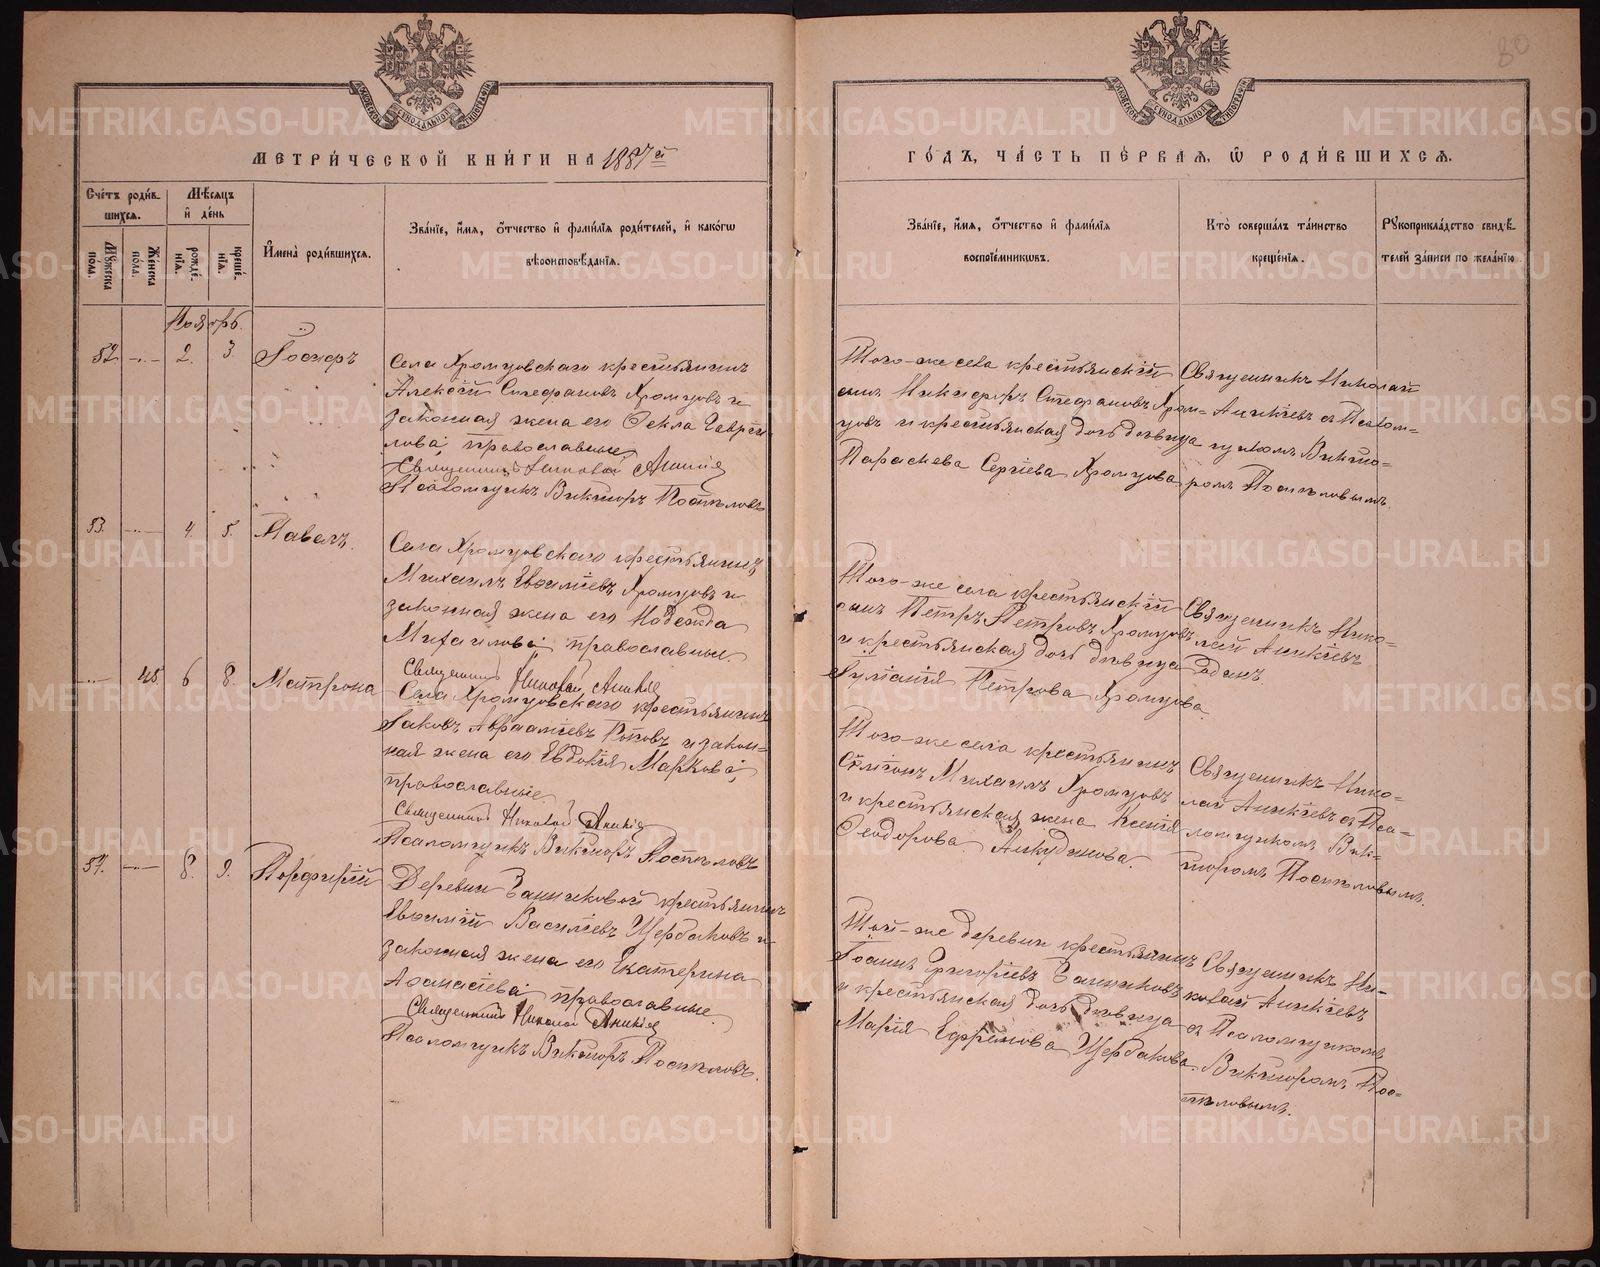 80
МЕТРИ́ЧЕСКОЙ КНИ́ГИ НА 1887 й
ГО́ДЪ, ЧА́СТЬ ПЕ́РВАЯ, Ѡ РОДИ́ВШИХСЯ.
Сче́тъ роди́в-
шихся.
Му́жеска по́ла.
Же́нска по́ла.
Мѣ́сяцъ
и҆ де́нь
рожде́-
нїя.
креще́-
нїя.
И҆мена̀ роди́вшихся.
Зва́нїе, и҆́мя, ѻ҆́тчество и҆ фами́лїя роди́телей, и҆ како́гѡ
вѣроисповѣ́данїя.
Зва́нїе, и҆́мя, ѻ҆́тчество и҆ фами́лїя
воспрїе́мниковъ.
Кто̀ соверша́лъ та́инство
креще́нїя.
Рукоприкла́дство свидѣ́-
телей за́писи по жела́нїю.
Ноябрь.
52.
2.
3
Села Хромцовскаго крестьянинъ
Алексій Стефановъ Хромцовъ и
законная жена его Ѳекла Гаврі-
лова; православные
Священникъ Николай Аникіев
Псаломщикъ Викторъ Поспѣловъ
Того-же села крестьянскій
сынъ Никифоръ Стефановъ Хром-
цовъ и крестьянская дочь дѣвица
Параскева Сергіева Хромцова
Священникъ Николай
Аникіевъ съ Псалом-
щикомъ Викто-
ромъ Поспѣловымъ.
53.
4.
5.
Павелъ.
Села Хромцовскаго крестьянинъ
Михаилъ Евѳиміевъ Хромцовъ и
законная жена его Надежда
Михаилова; православные.
Священникъ Николай Аникіев
Того-же села крестьянскій
сынъ Петръ Петровъ Хромцовъ
и крестьянская дочь дѣвица
Іуліанія Петрова Хромцова
Священникъ Нико-
лай Аникіевъ
Единъ.
48.
6
8.
Матрона
Села Хромцовскаго крестьянинъ
Іаковъ Аврааміевъ Поповъ и закон-
ная жена его Евдокія Маркова;
православные
Священникъ Николай Аникіев
Псаломщикъ Викторъ Поспѣловъ
Того-же села крестьянинъ
Сѵмеонъ Михаилъ Хромцовъ
и крестьянская жена Ксенія
Ѳеодорова Анкудинова.
Священникъ Нико-
лай Аникіевъ съ Пса-
ломщикомъ Вик-
торомъ Поспѣловымъ.
54.
8.
9.
Порфирій
Деревни Банниковой крестьянинъ
Евѳимій Василіевъ Щербаковъ и
законная жена его Екатерина
Аѳанасіева; православные.
Священникъ Николай Аникіев
Псаломщикъ Викторъ Поспѣловъ.
Той-же деревни крестьянинъ
Іоаннъ Григоріевъ Банниковъ
и крестьянская дочь дѣвица
Марія Ефремова Щербакова.
Священникъ Ни-
колай Аникіевъ
съ Псаломщикомъ
Викторомъ Пос-
пѣловымъ.
METRIKI.GASO-URAL.RU